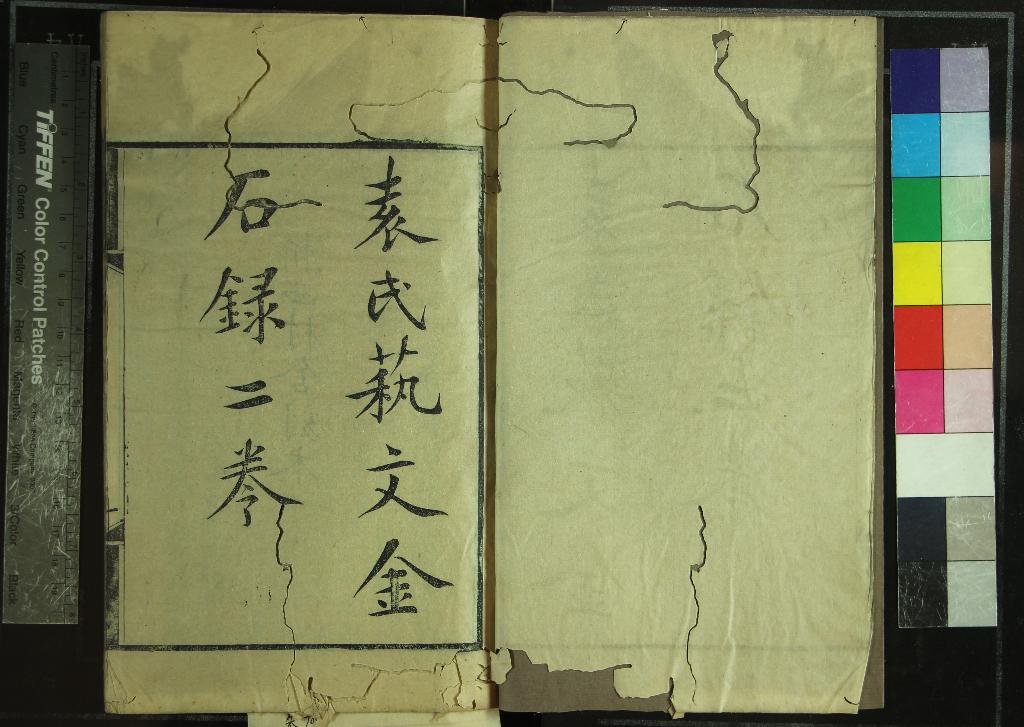 袁氏蓺文金
石録二卷
TIFFEN Color Control Patches
Blue Cyan Green Yellow Red Magenta White 3/Color Black
Centimetres